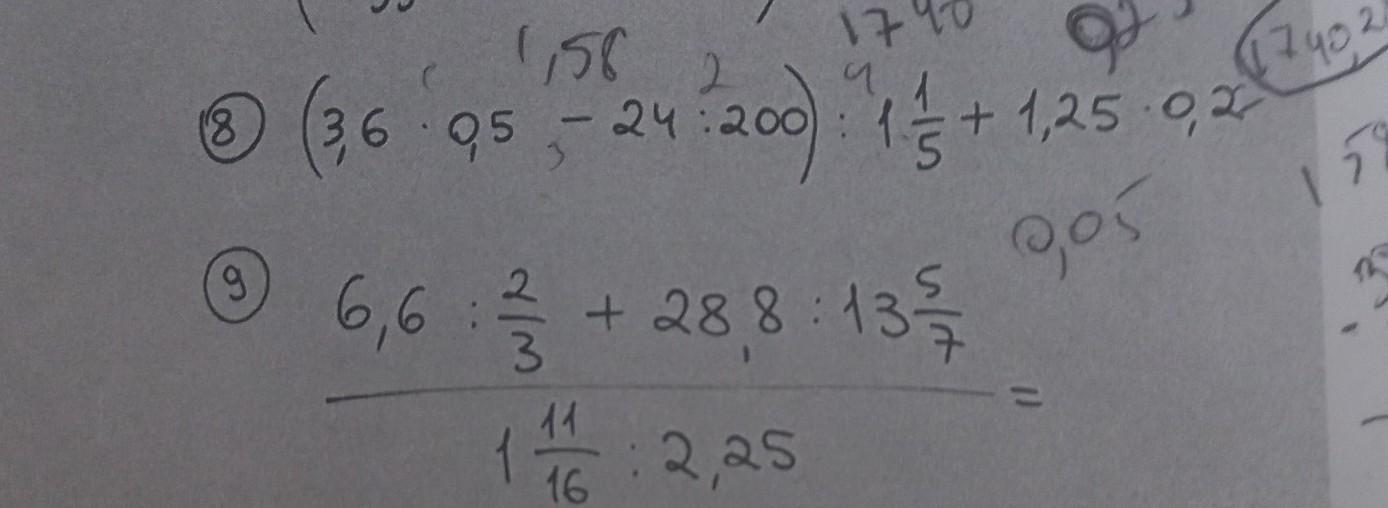 1,56 2 1740
⑧ (3,6 · 0,5 - 24 : 200) : 1 1/5 + 1,25 · 0,2
0,05
⑨ 6,6 : 2/3 + 28,8 : 13 5/7
=
1 11/16 : 2,25